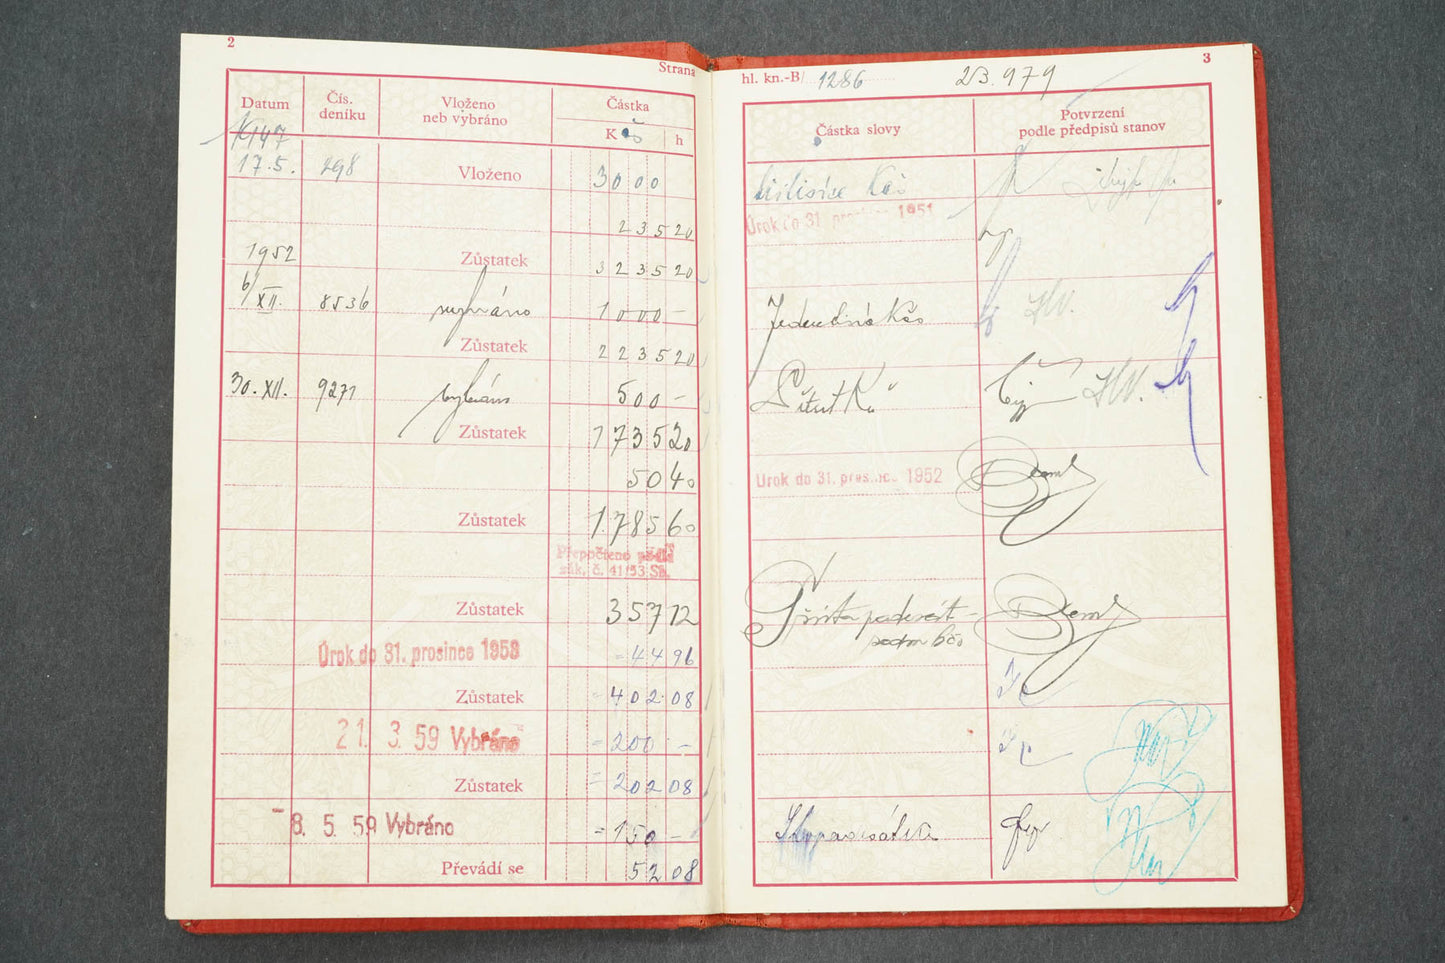 2
Strana
Datum
Čís.
deníku
Vloženo
neb vybráno
Částka
K čs h
17.5. 298 Vloženo 3000
23520
1952 Zůstatek 323520
6/XII. 8536 vybráno 1000 –
Zůstatek 223520
30. XII. 9271 vybráno 500 –
Zůstatek 173520
5040
Zůstatek 178560
Přepočteno podle
zák. č. 41/53 Sb.
Zůstatek 35712
Úrok do 31. prosince 1958 = 4496
Zůstatek = 40208
21. 3. 59 Vybráno = 200 –
Zůstatek = 20208
8. 5. 59 Vybráno = 150 –
Převádí se 5208
3
hl. kn.-B/ 1286 23.979
Částka slovy
Potvrzení
podle předpisů stanov
Kčs
Úrok do 31. prosince 1951
Jedentisíc Kčs
Úrok do 31. prosince 1952
Třista padesát
sedm Kčs